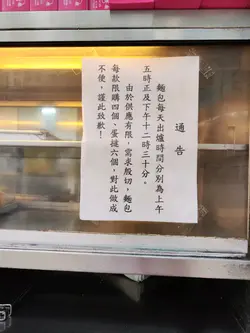 通告
麵包每天出爐時間分別為上午
五時正及下午十二時三十分。
由於供應有限，需求殷切，麵包
每款限購四個、蛋撻六個，對此做成
不便，謹此致歉！